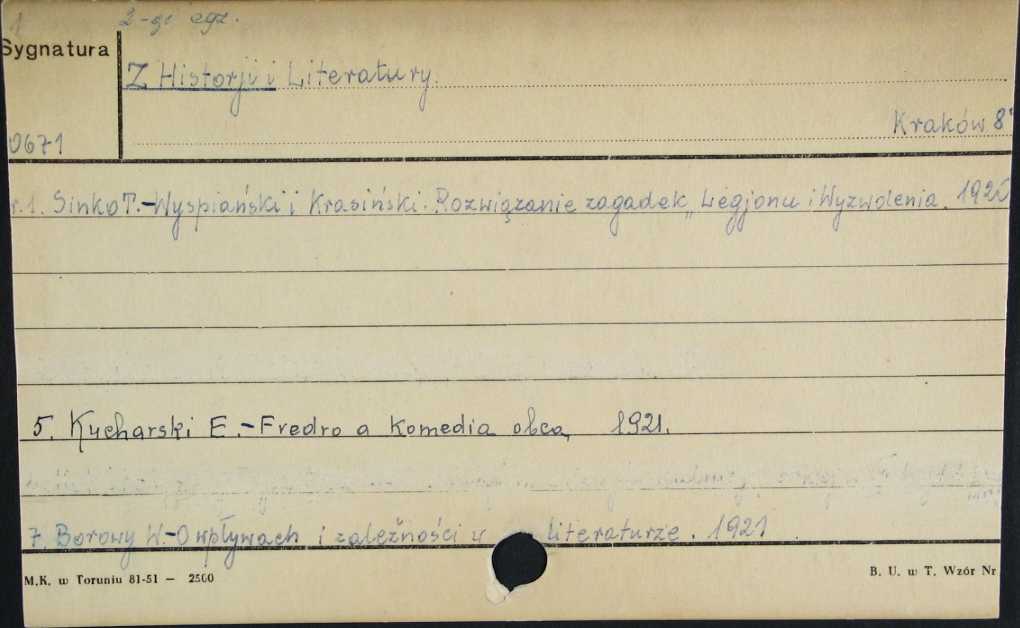 1 2-gi egz.
Sygnatura
Z Historji i Literatury.
Kraków 8°
0671
r.1. Sinko T.-Wyspiański i Krasiński. Rozwiązanie zagadek „Legjonu i Wyzwolenia. 1920
5. Kucharski E.-Fredro a komedia obca, 1921.
7. Borowy W.-O wpływach i zależności w literaturze. 1921
M.K. w Toruniu 81-51 — 2500
B. U. w T. Wzór Nr